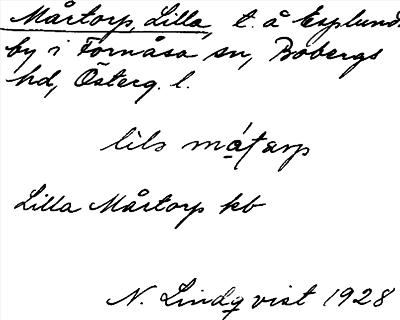 Mårtorp, Lilla, t. å Esplunda
by i Fornåsa sn, Bobergs
hd, Österg. l.
lils má̱tarp
Lilla Mårtorp kb
N. Lindqvist 1928